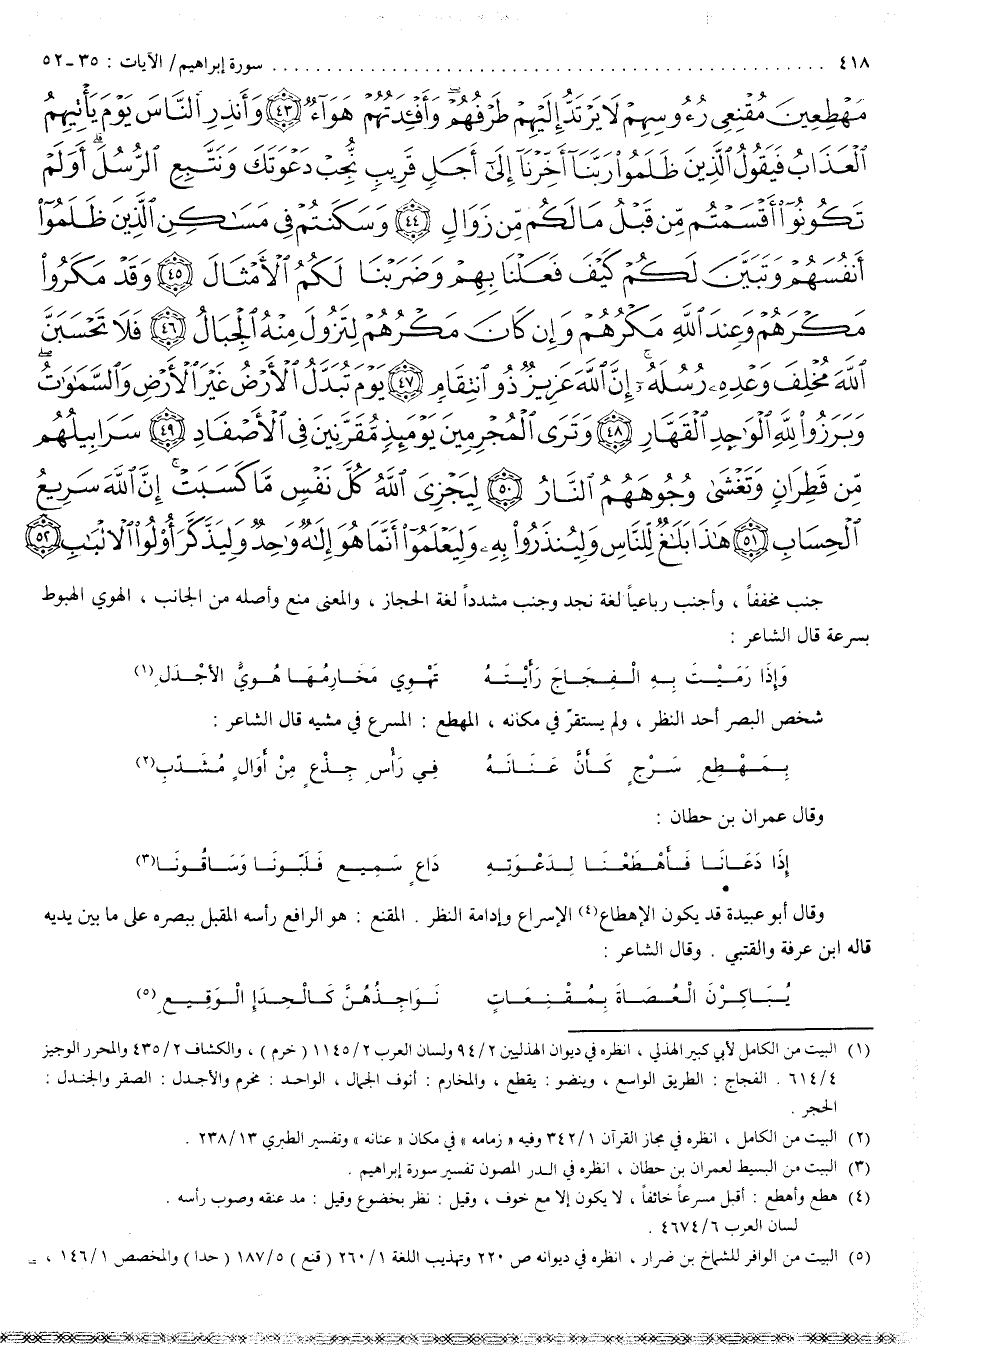 ٤١٨ ........................................ سورة إبراهيم/ الآيات : ٣٥-٥٢
مُهْطِعِينَ مُقْنِعِي رُءُوسِهِمْ لَا يَرْتَدُّ إِلَيْهِمْ طَرْفُهُمْ ۖ وَأَفْـِٔدَتُهُمْ هَوَآءٌ ﴿٤٣﴾ وَأَنذِرِ ٱلنَّاسَ يَوْمَ يَأْتِيهِمُ
ٱلْعَذَابُ فَيَقُولُ ٱلَّذِينَ ظَلَمُوا۟ رَبَّنَآ أَخِّرْنَآ إِلَىٰٓ أَجَلٍ قَرِيبٍ نُّجِبْ دَعْوَتَكَ وَنَتَّبِعِ ٱلرُّسُلَ ۗ أَوَلَمْ
تَكُونُوٓا۟ أَقْسَمْتُم مِّن قَبْلُ مَا لَكُم مِّن زَوَالٍ ﴿٤٤﴾ وَسَكَنتُمْ فِى مَسَٰكِنِ ٱلَّذِينَ ظَلَمُوٓا۟
أَنفُسَهُمْ وَتَبَيَّنَ لَكُمْ كَيْفَ فَعَلْنَا بِهِمْ وَضَرَبْنَا لَكُمُ ٱلْأَمْثَالَ ﴿٤٥﴾ وَقَدْ مَكَرُوا۟
مَكْرَهُمْ وَعِندَ ٱللَّهِ مَكْرُهُمْ وَإِن كَانَ مَكْرُهُمْ لِتَزُولَ مِنْهُ ٱلْجِبَالُ ﴿٤٦﴾ فَلَا تَحْسَبَنَّ
ٱللَّهَ مُخْلِفَ وَعْدِهِۦ رُسُلَهُۥٓ ۗ إِنَّ ٱللَّهَ عَزِيزٌ ذُو ٱنتِقَامٍ ﴿٤٧﴾ يَوْمَ تُبَدَّلُ ٱلْأَرْضُ غَيْرَ ٱلْأَرْضِ وَٱلسَّمَٰوَٰتُ ۖ
وَبَرَزُوا۟ لِلَّهِ ٱلْوَٰحِدِ ٱلْقَهَّارِ ﴿٤٨﴾ وَتَرَى ٱلْمُجْرِمِينَ يَوْمَئِذٍ مُّقَرَّنِينَ فِى ٱلْأَصْفَادِ ﴿٤٩﴾ سَرَابِيلُهُم
مِّن قَطِرَانٍ وَتَغْشَىٰ وُجُوهَهُمُ ٱلنَّارُ ﴿٥٠﴾ لِيَجْزِىَ ٱللَّهُ كُلَّ نَفْسٍ مَّا كَسَبَتْ ۚ إِنَّ ٱللَّهَ سَرِيعُ
ٱلْحِسَابِ ﴿٥١﴾ هَٰذَا بَلَٰغٌ لِّلنَّاسِ وَلِيُنذَرُوا۟ بِهِۦ وَلِيَعْلَمُوٓا۟ أَنَّمَا هُوَ إِلَٰهٌ وَٰحِدٌ وَلِيَذَّكَّرَ أُو۟لُوا۟ ٱلْأَلْبَٰبِ ﴿٥٢﴾
جنب مخففاً ، وأجنب رباعياً لغة نجد وجنب مشدداً لغة الحجاز ، والمعنى منع وأصله من الجانب ، الهوي الهبوط
بسرعة قال الشاعر :
وَإِذَا رَمَيْتَ بِهِ الْفِجَاجَ رَأَيْتَهُ تَهْوِي مَخَارِمُهَا هُوِيَّ الأَجْدَلِ (١)
شخص البصر أحد النظر ، ولم يستقرّ في مكانه ، المهطع : المسرع في مشيه قال الشاعر :
بِمَهْطِعِ سَرْجٍ كَأَنَّ عَنَانَهُ فِي رَأْسِ جِذْعٍ مِنْ أَوَالٍ مُشَذَّبِ (٢)
وقال عمران بن حطان :
إِذَا دَعَانَا فَأَهْطَعْنَا لِدَعْوَتِهِ دَاعٍ سَمِيعٍ فَلَبّونَا وَسَاقُونَا (٣)
وقال أبو عبيدة قد يكون الإهطاع (٤) الإسراع وإدامة النظر . المقنع : هو الرافع رأسه المقبل ببصره على ما بين يديه
قاله ابن عرفة والقتبي . وقال الشاعر :
يُبَاكِرْنَ الْعُضَاةَ بِمُقْنِعَاتٍ نَوَاجِذُهُنَّ كَالْحِدَإِ الْوَقِيعِ (٥)
(١) البيت من الكامل لأبي كبير الهذلي ، انظره في ديوان الهذليين ٩٤/٢ ولسان العرب ١١٤٥/٢ ( خرم ) ، والكشاف ٤٣٥/٢ والمحرر الوجيز
٦١٤/٤ . الفجاج : الطريق الواسع ، وينضو : يقطع ، والمخارم : أنوف الجمال ، الواحد : مخرم والأجدل : الصقر والجندل :
الحجر .
(٢) البيت من الكامل ، انظره في مجاز القرآن ٣٤٢/١ وفيه « زمامه » في مكان « عنانه » وتفسير الطبري ٢٣٨/١٣ .
(٣) البيت من البسيط لعمران بن حطان ، انظره في الدر المصون تفسير سورة إبراهيم .
(٤) هطع وأهطع : أقبل مسرعاً خائفاً ، لا يكون إلا مع خوف ، وقيل : نظر بخضوع وقيل : مد عنقه وصوب رأسه .
لسان العرب ٤٦٧٤/٦ .
(٥) البيت من الوافر للشماخ بن ضرار ، انظره في ديوانه ص ٢٢٠ وتهذيب اللغة ٢٦٠/١ ( قنع ) ١٨٧/٥ ( حدا ) والمخصص ١٤٦/١ ، =